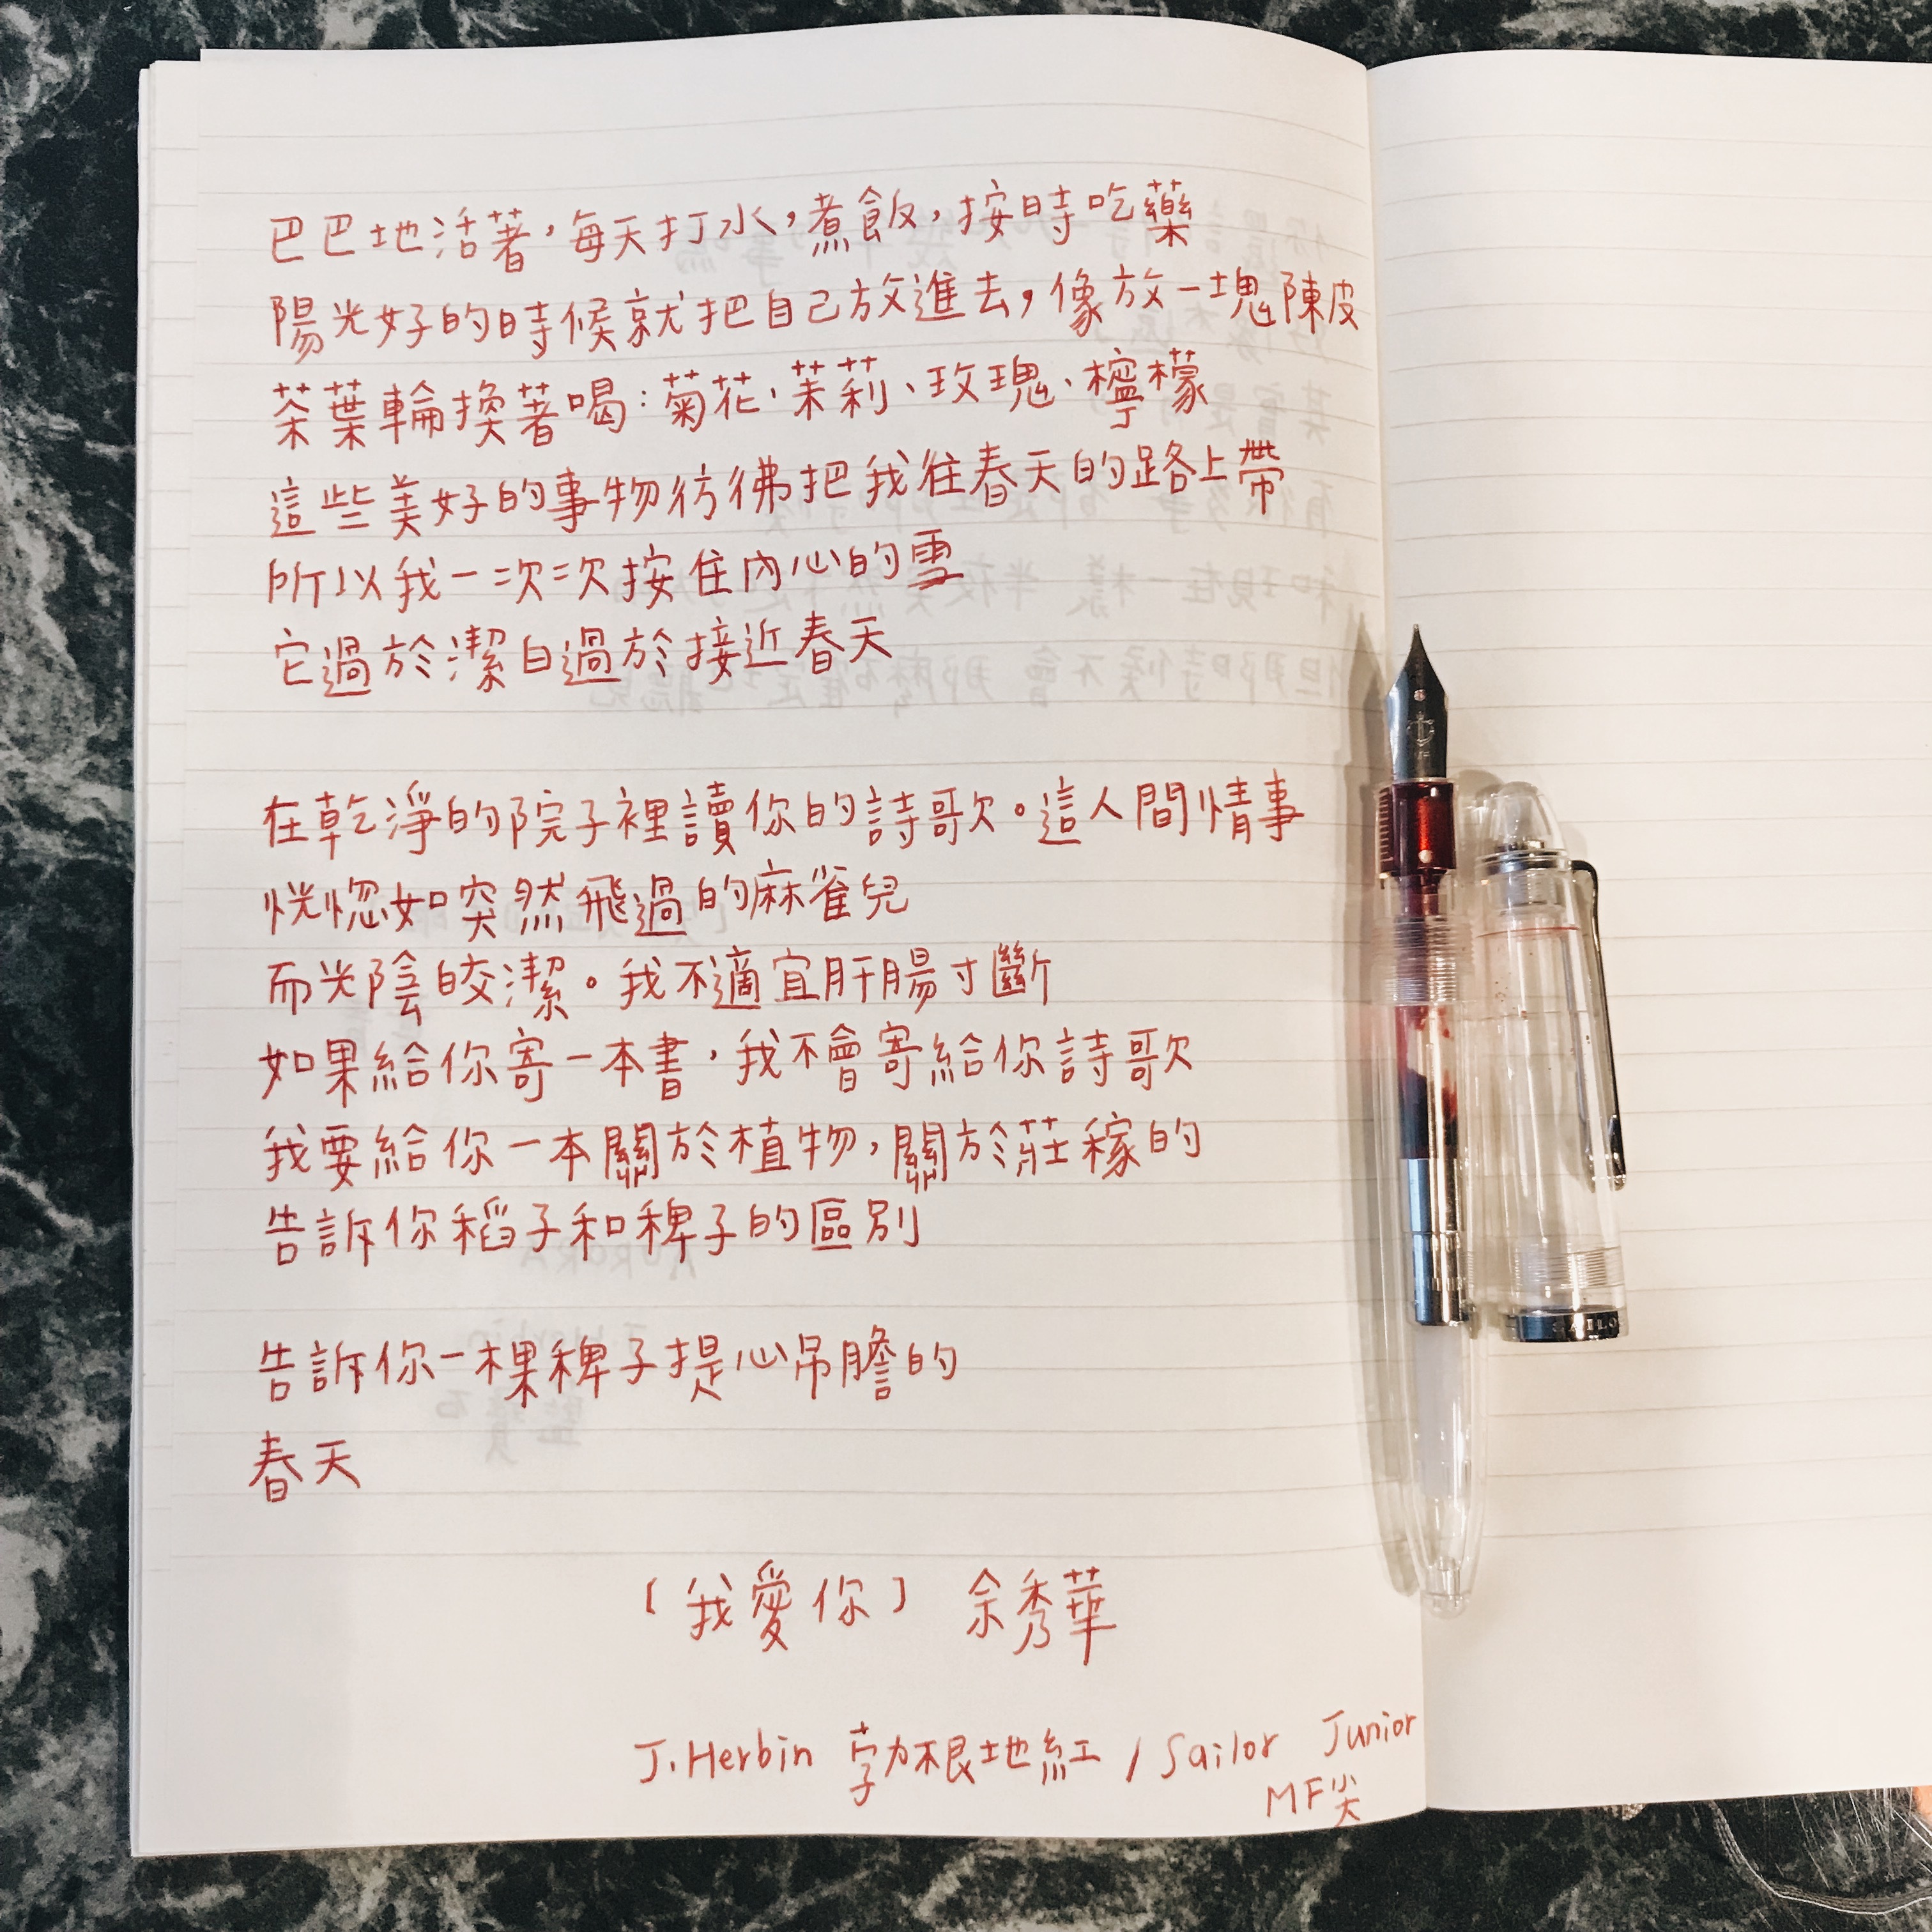 巴巴地活著，每天打水，煮飯，按時吃藥
陽光好的時候就把自己放進去，像放一塊陳皮
茶葉輪換著喝：菊花、茉莉、玫瑰、檸檬
這些美好的事物彷彿把我往春天的路上帶
所以我一次次按住內心的雪
它過於潔白過於接近春天
在乾淨的院子裡讀你的詩歌。這人間情事
恍惚如突然飛過的麻雀兒
而光陰皎潔。我不適宜肝腸寸斷
如果給你寄一本書，我不會寄給你詩歌
我要給你一本關於植物，關於莊稼的
告訴你稻子和稗子的區別
告訴你一棵稗子提心吊膽的
春天
〔我愛你〕 余秀華
J.Herbin 勃根地紅 / Sailor Junior
MF尖
SAILO